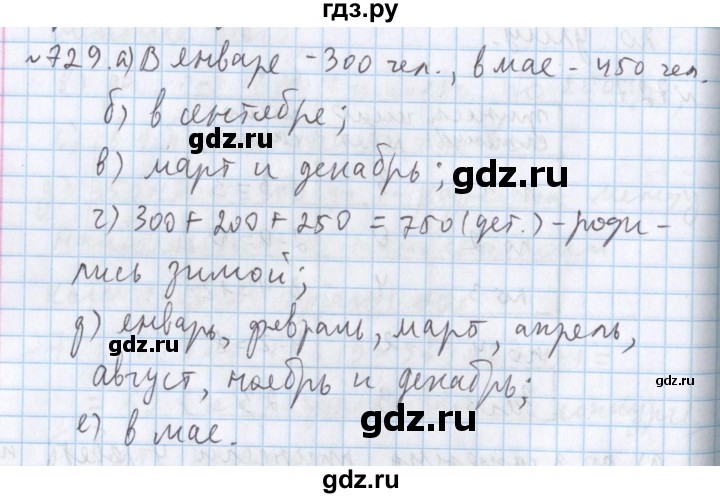 гдз.ру
№729. а) В январе - 300 чел., в мае - 450 чел.
б) в сентябре;
gdz.ru
в) март и декабрь;
gdz.ru
г) 300 + 200 + 250 = 750 (дет.) - роди-
лись зимой;
д) январь, февраль, март, апрель,
gdz.ru
gdz.ru
август, ноябрь и декабрь;
е) в мае.
gdz.ru
гдз.ру